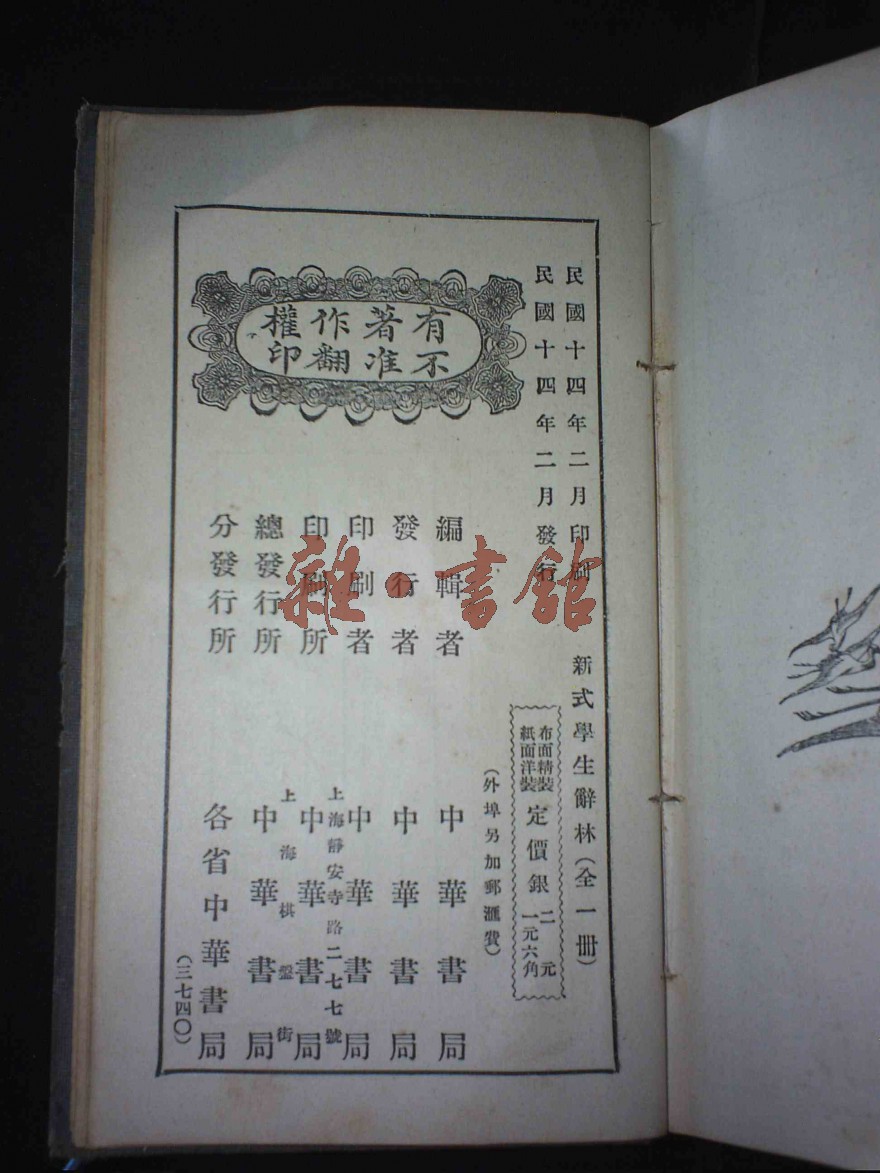 民國十四年二月印刷
民國十四年二月發行
新式學生辭林(全一冊)
布面精裝
紙面洋裝
定價銀
二元
一元六角
(外埠另加郵滙費)
有著作權
不准翻印
編輯者 中華書局
發行者 中華書局
印刷者 中華書局
上海靜安寺路二七七號
印刷所 中華書局
上海棋盤街
總發行所 中華書局
分發行所 各省中華書局
(三七四〇)
雜·書館